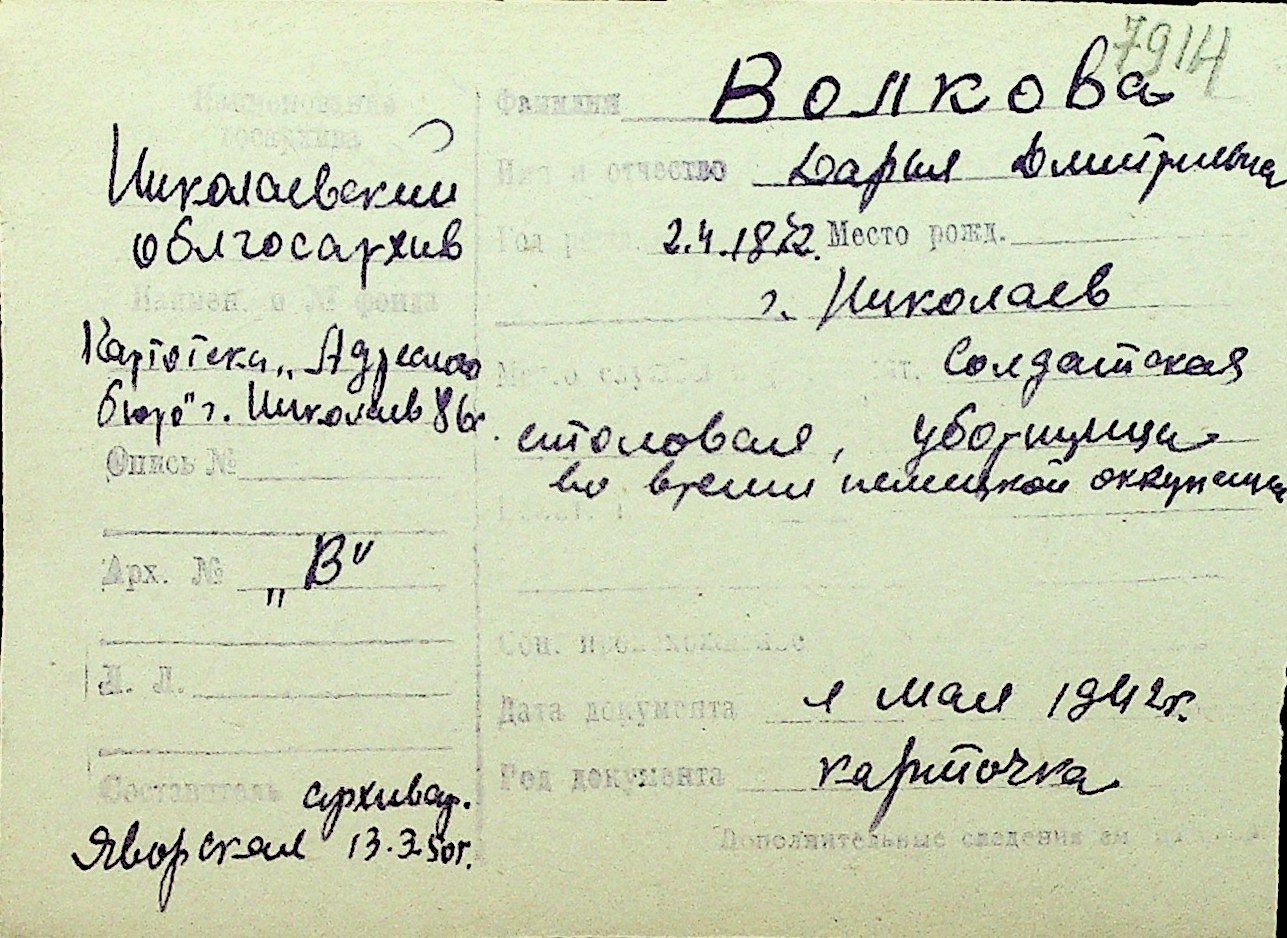 7914
Наименование
госархива
Николаевский
облгосархив
Наимен. и № фонда
Картотека „Адресного
бюро" г. Николаев
Опись №
Арх. № „В"
Л. Л.
Составитель архивар.
Яворская 13.3.50г.
Фамилия Волкова
Имя и отчество Дарья Дмитриевна
Год 2.4.1872. Место рожд.
г. Николаев
Место службы Солдатская
столовая, уборщица
во время немецкой оккупации
Соц. происхождение
Дата документа 1 мая 1942г.
Род документа карточка
Дополнительные сведения см.